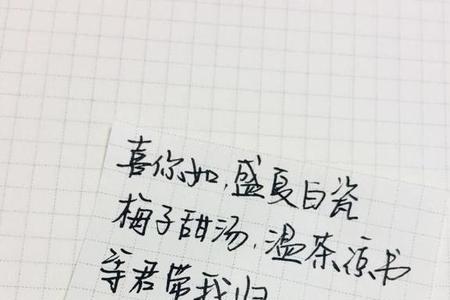 喜你如,盛夏白瓷
梅子甜汤,温茶凉书
等君带我归